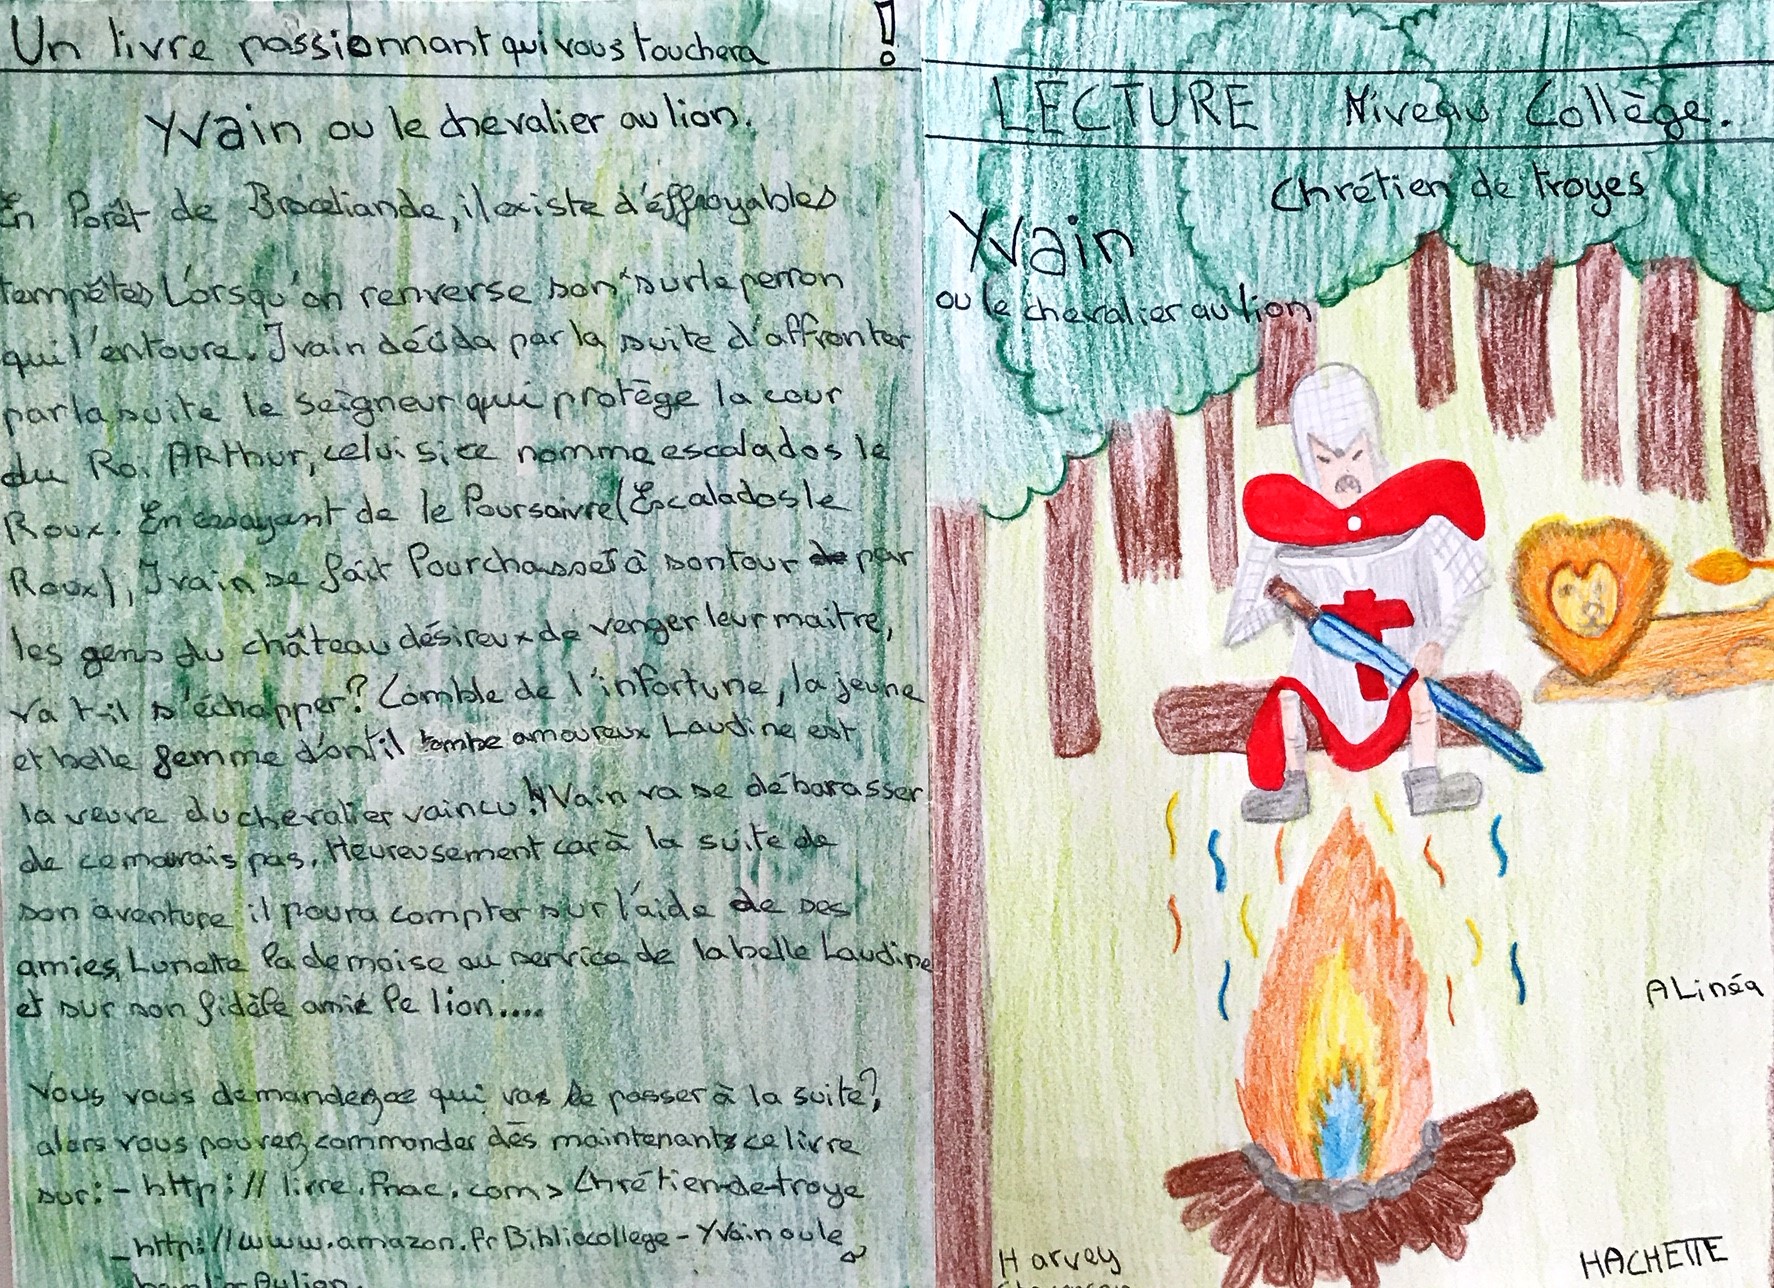 Un livre passionnant qui vous touchera !
Yvain ou le chevalier au lion.
En Forêt de Broceliande, il existe d'éffroyables
tempêtes Lorsqu'on renverse son sur le perron
qui l'entoure. Ivain décida par la suite d'affronter
par la suite le seigneur qui protège la cour
du Roi ARthur, celui si ce nomme escalados le
Roux. En essayant de le Poursuivre (Escalados le
Roux), Ivain se fait Pourchasser à son tour par
les gens du château désireux de venger leur maitre,
va t-il s'échapper? Comble de l'infortune, la jeune
et belle femme d'ont il tombe amoureux Laudine est
la veuve du chevalier vaincu ! YVain va se débarasser
de ce mauvais pas. Heureusement car à la suite de
son aventure il poura compter sur l'aide de ses
amies, Lunette la demoise au service de la belle Laudine
et sur son fidèle amie le lion....
Vous vous demandez ce qui vas se passer à la suite?,
alors vous pouvez commander dès maintenants ce livre
sur: - http://livre.fnac.com> Chrétien-de-troye
- http://www.amazon.fr Bibliocollege - Yvain oule
Aulion.
LECTURE Niveau Collège.
Chrétien de troyes
Yvain
ou le chevalier au lion
ALinéa
Harvey
HACHETTE